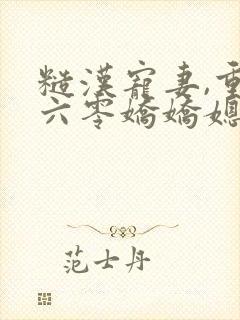 糙漢寵妻,重
六零嬌嬌媳
范士丹